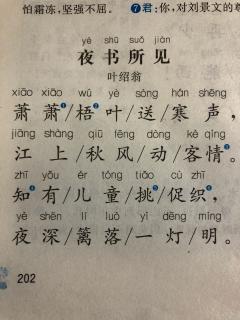 怕霜冻,坚强不屈。 ❼君:你,对刘景文的尊
yè shū suǒ jiàn
夜书所见
叶绍翁
xiāo xiāo wú yè sòng hán shēng
萧萧❶/梧❷叶/送/寒声,
jiāng shàng qiū fēng dòng kè qíng
江上/秋风/动/客情❸。
zhī yǒu ér tóng tiǎo cù zhī
知❹有/儿童/挑❺/促织,
yè shēn lí luò yì dēng míng
夜深/篱落/一灯/明。
202